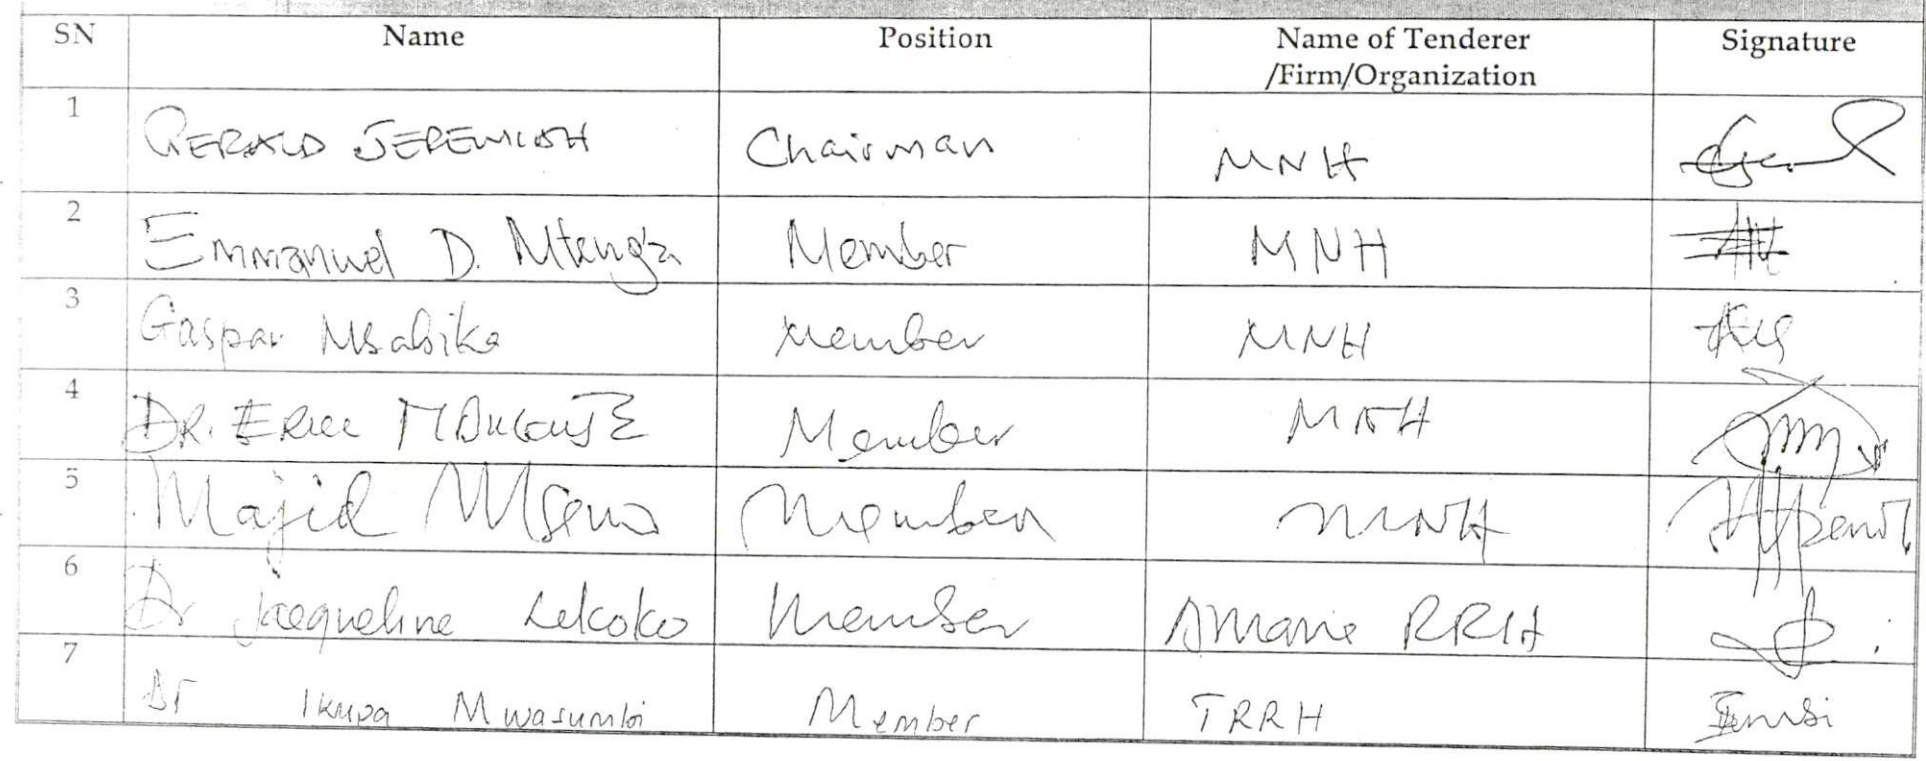 SN Name Position Name of Tenderer /Firm/Organization Signature
1 GERALD JEREMIAH Chairman MNH
2 Emmanuel D. Mtenga Member MNH
3 Gaspar Msabika Member MNH
4 DR. ERIC Member MNH
5 Majid Member MNH
6 Dr Jacqueline Lekoko Member Amana RRH
7 Dr Ikupa Mwasumbi Member TRRH